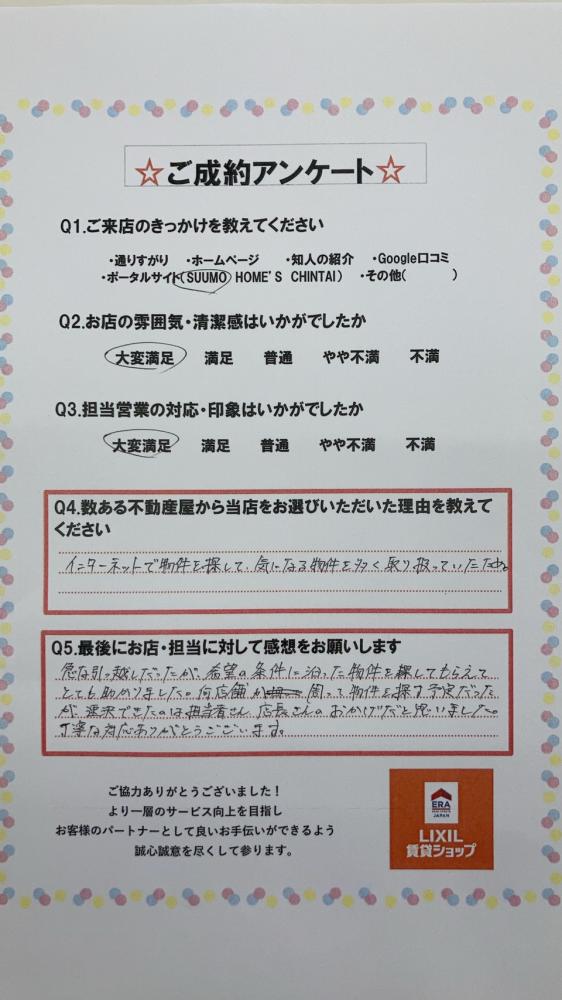 ☆ご成約アンケート☆
Q1.ご来店のきっかけを教えてください
・通りすがり ・ホームページ ・知人の紹介 ・Google口コミ
・ポータルサイト(SUUMO HOME'S CHINTAI) ・その他( )
Q2.お店の雰囲気・清潔感はいかがでしたか
大変満足 満足 普通 やや不満 不満
Q3.担当営業の対応・印象はいかがでしたか
大変満足 満足 普通 やや不満 不満
Q4.数ある不動産屋から当店をお選びいただいた理由を教えて
ください
インターネットで物件を探して、気になる物件を多く取り扱っていたため。
Q5.最後にお店・担当に対して感想をお願いします
急な引っ越しだったが、希望の条件に沿った物件を探してもらえて
とても助かりました。何店舗か回って物件を探す予定だった
が、即決できたのは担当者さん、店長さんのおかげだと思いました。
丁寧な対応ありがとうございます。
ご協力ありがとうございました！
より一層のサービス向上を目指し
お客様のパートナーとして良いお手伝いができるよう
誠心誠意を尽くして参ります。
ERA
JAPAN
LIXIL
賃貸ショップ